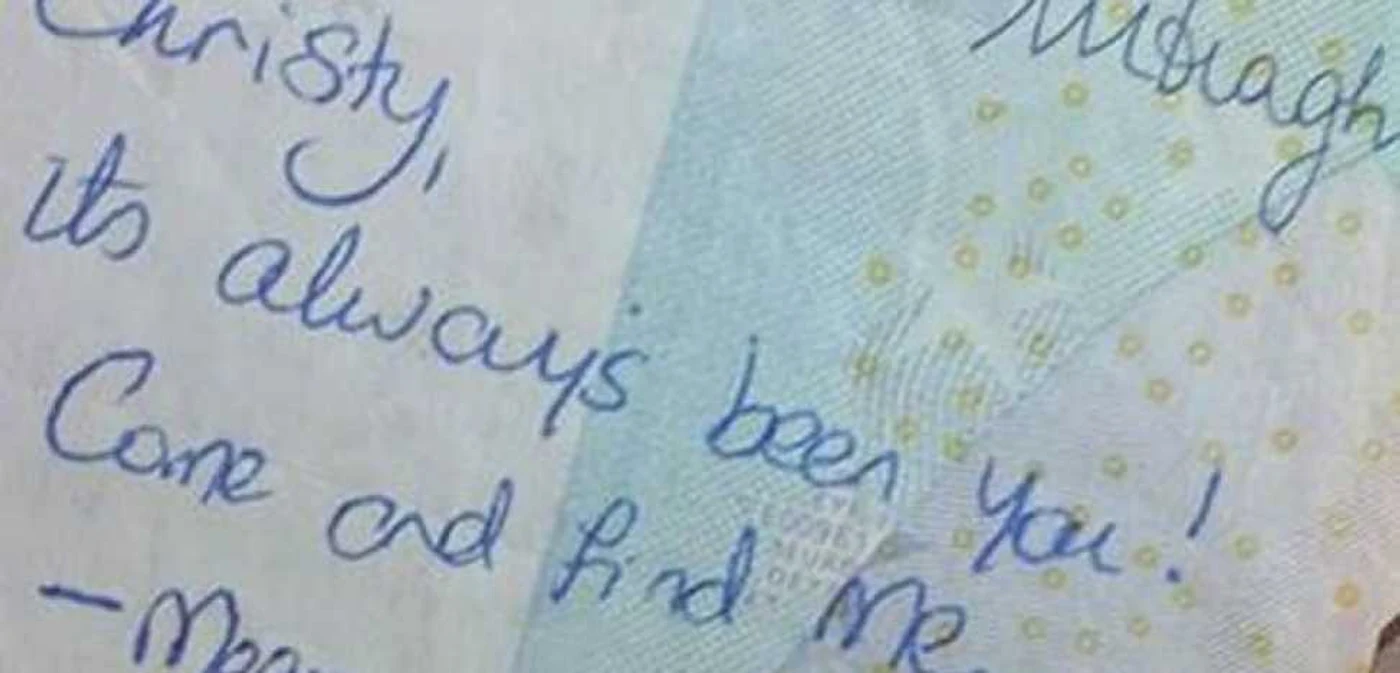 Christy,
its always been you!
Come and find me